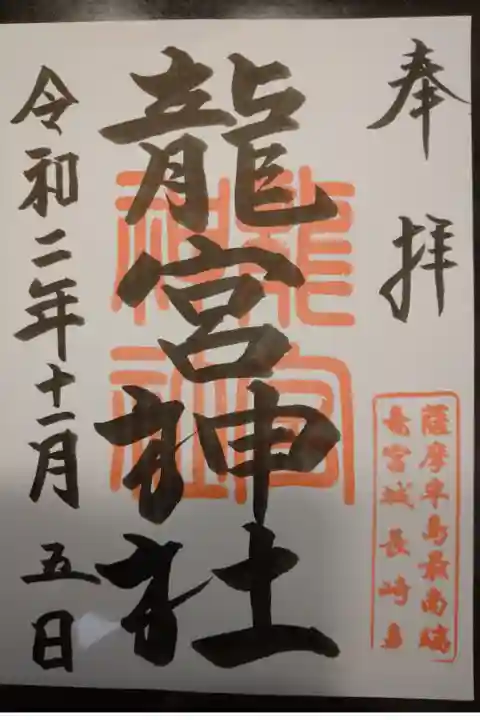 奉拝
薩摩半島最南端
竜宮城長崎鼻
龍宮神社
龍宮神社
令和二年十一月五日